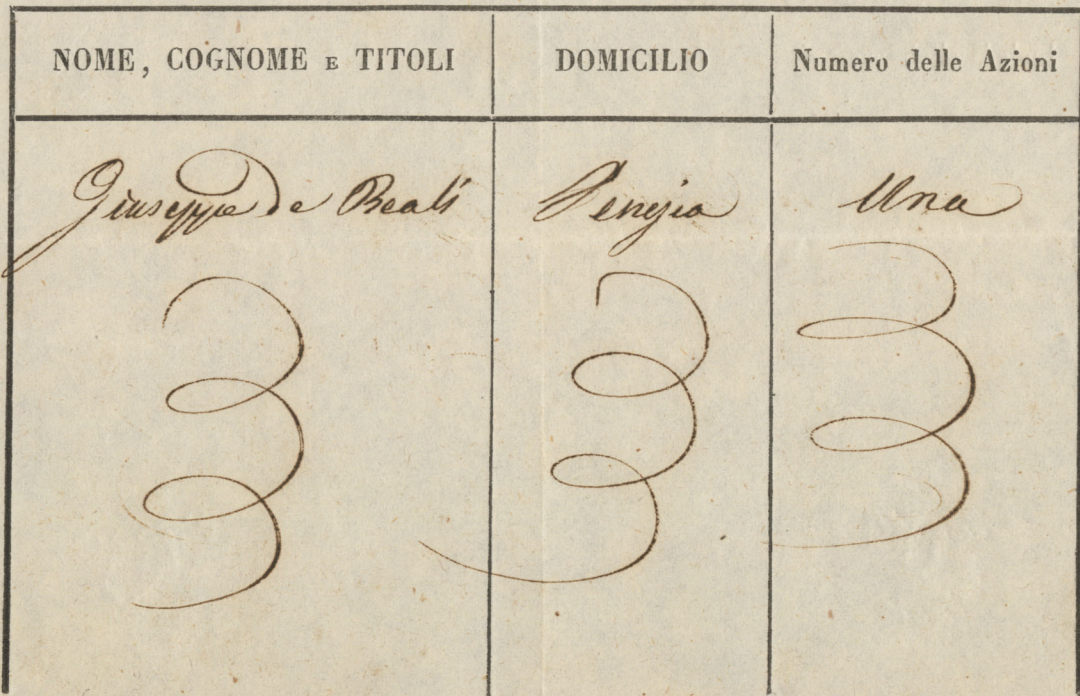 NOME, COGNOME E TITOLI DOMICILIO Numero delle Azioni
Giuseppe de Reali Venezia Una